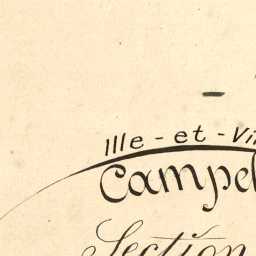 Ille-et-Vi
Campel
Section